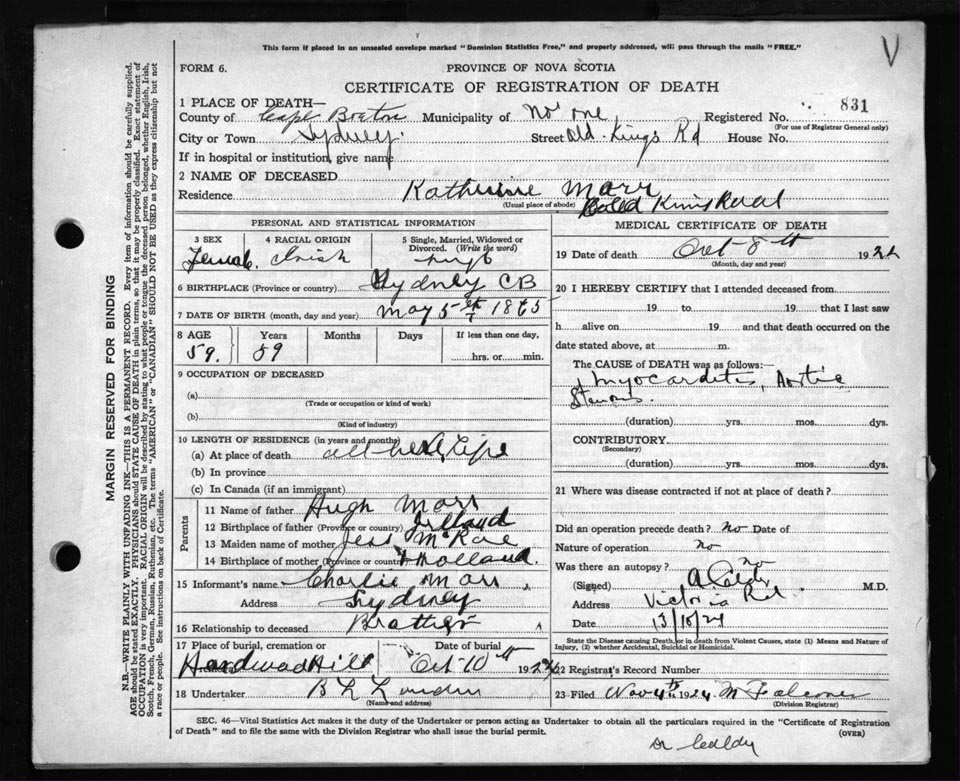 This form if placed in an unsealed envelope marked "Dominion Statistics Free," and properly addressed, will pass through the mails "FREE."
V
FORM 6.
PROVINCE OF NOVA SCOTIA
CERTIFICATE OF REGISTRATION OF DEATH
831
1 PLACE OF DEATH—
County of Cape Breton Municipality of No one Registered No.
(For use of Registrar General only)
City or Town Sydney. Street Old Kings Rd House No.
If in hospital or institution, give name
2 NAME OF DECEASED Katherine Marr
Residence
(Usual place of abode)
MARGIN RESERVED FOR BINDING
N.B.—WRITE PLAINLY WITH UNFADING INK—THIS IS A PERMANENT RECORD. Every item of information should be carefully supplied.
AGE should be stated EXACTLY. PHYSICIANS should STATE CAUSE OF DEATH in plain terms, so that it may be properly classified. Exact statement of
OCCUPATION is very important. RACIAL ORIGIN will be described by stating to what people or tongue the deceased person belonged, whether English, Irish,
Scotch, French, German, Russian, Ruthenian, etc. The terms "AMERICAN" or "CANADIAN" SHOULD NOT BE USED as they express citizenship but not
a race or people. See instructions on back of Certificate.
PERSONAL AND STATISTICAL INFORMATION
3 SEX
Female.
4 RACIAL ORIGIN
Irish
5 Single, Married, Widowed or
Divorced. (Write the word)
6 BIRTHPLACE (Province or country) Sydney CB
7 DATE OF BIRTH (month, day and year) May 5th 1865
8 AGE
59.
Years
59
Months
Days
If less than one day,
hrs. or min.
9 OCCUPATION OF DECEASED
(a)
(Trade or occupation or kind of work)
(b)
(Kind of industry)
10 LENGTH OF RESIDENCE (in years and months)
(a) At place of death all her Life
(b) In province
(c) In Canada (if an immigrant)
Parents
11 Name of father Hugh Marr
12 Birthplace of father (Province or country) Irlland
13 Maiden name of mother Jess McRae
14 Birthplace of mother (Province or country) Holland.
15 Informant's name Charlie Marr
Address Sydney
16 Relationship to deceased Brother
17 Place of burial, cremation or
Hardwood Hill
Date of burial
Oct 10th 1924
18 Undertaker
(Name and address)
MEDICAL CERTIFICATE OF DEATH
19 Date of death Oct 8th 1924
(Month, day and year)
20 I HEREBY CERTIFY that I attended deceased from
19 to 19 that I last saw
h alive on 19 and that death occurred on the
date stated above, at m.
The CAUSE OF DEATH was as follows:—
Myocarditis, Aortic
Stenosis.
(duration) yrs. mos. dys.
CONTRIBUTORY
(Secondary)
(duration) yrs. mos. dys.
21 Where was disease contracted if not at place of death?
Did an operation precede death? No Date of
Nature of operation no
Was there an autopsy? no
(Signed) M.D.
Address Victoria Rd.
Date 13/10/24
State the Disease causing Death, or in death from Violent Causes, state (1) Means and Nature of
Injury, (2) whether Accidental, Suicidal or Homicidal.
22 Registrar's Record Number
23 Filed Nov 4th 1924 M Falconer
(Division Registrar)
SEC. 46—Vital Statistics Act makes it the duty of the Undertaker or person acting as Undertaker to obtain all the particulars required in the "Certificate of Registration
of Death" and to file the same with the Division Registrar who shall issue the burial permit.
(OVER)
Dr